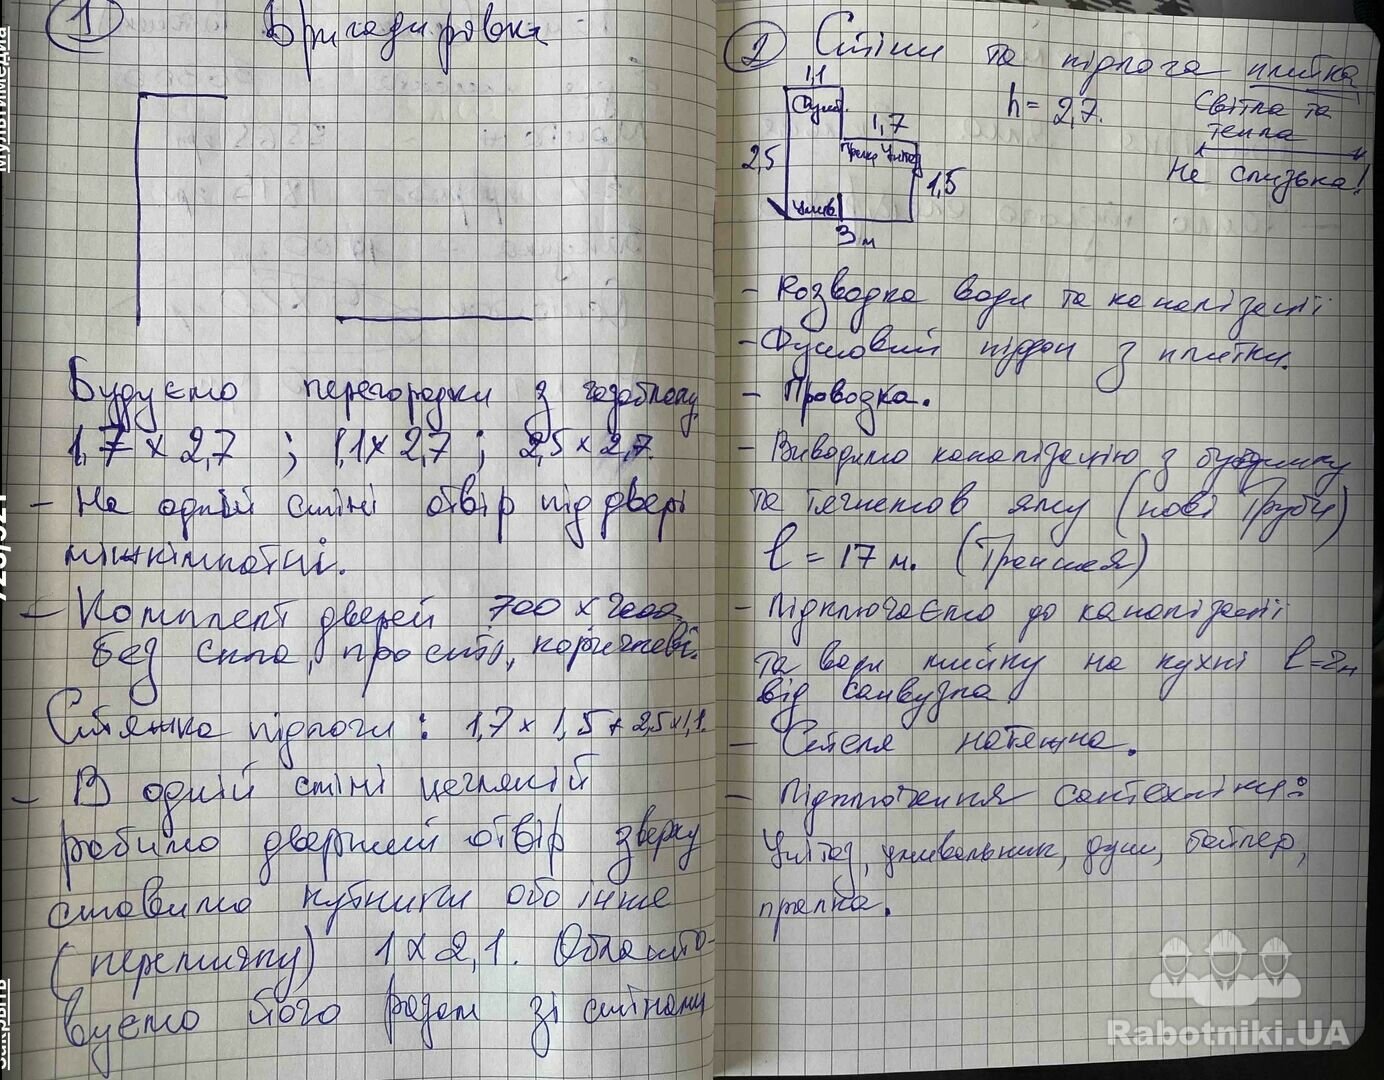 1 Бригадировка
Будуємо перегородки з газоблоку
1,7 х 2,7 ; 1,1 х 2,7 ; 2,5 х 2,7.
- На одній стіні отвір під двері
міжкімнатні.
- Комплект дверей 700 х 2000
без скла, прості, коричневі.
Стяжка підлоги: 1,7 х 1,5 + 2,5 х 1,1.
- В одній стіні цегляній
робимо дверний отвір зверху
ставимо кутники або інше
(перемичку) 1 х 2,1. Облашто-
вуємо його разом зі стінами
2 Стіни та підлога плитка
1,1
Душ
h = 2,7.
Світла та
тепла
Не слизька!
1,7
2,5
Пралка Унітаз
1,5
Умив
3 м
- Розводка води та каналізації
- Душовий піддон з плитки.
- Проводка.
- Виводимо каналізацію з будинку
та тягнемо в яму (нові труби)
l = 17 м. (Траншея)
- Підключаємо до каналізації
та води мийку на кухні l = 2м
від санвузла
- Стеля натяжна.
- Підключення сантехніки:
Унітаз, умивальник, душ, бойлер,
пралка.
Мультимедиа
закрыть
Rabotniki.UA